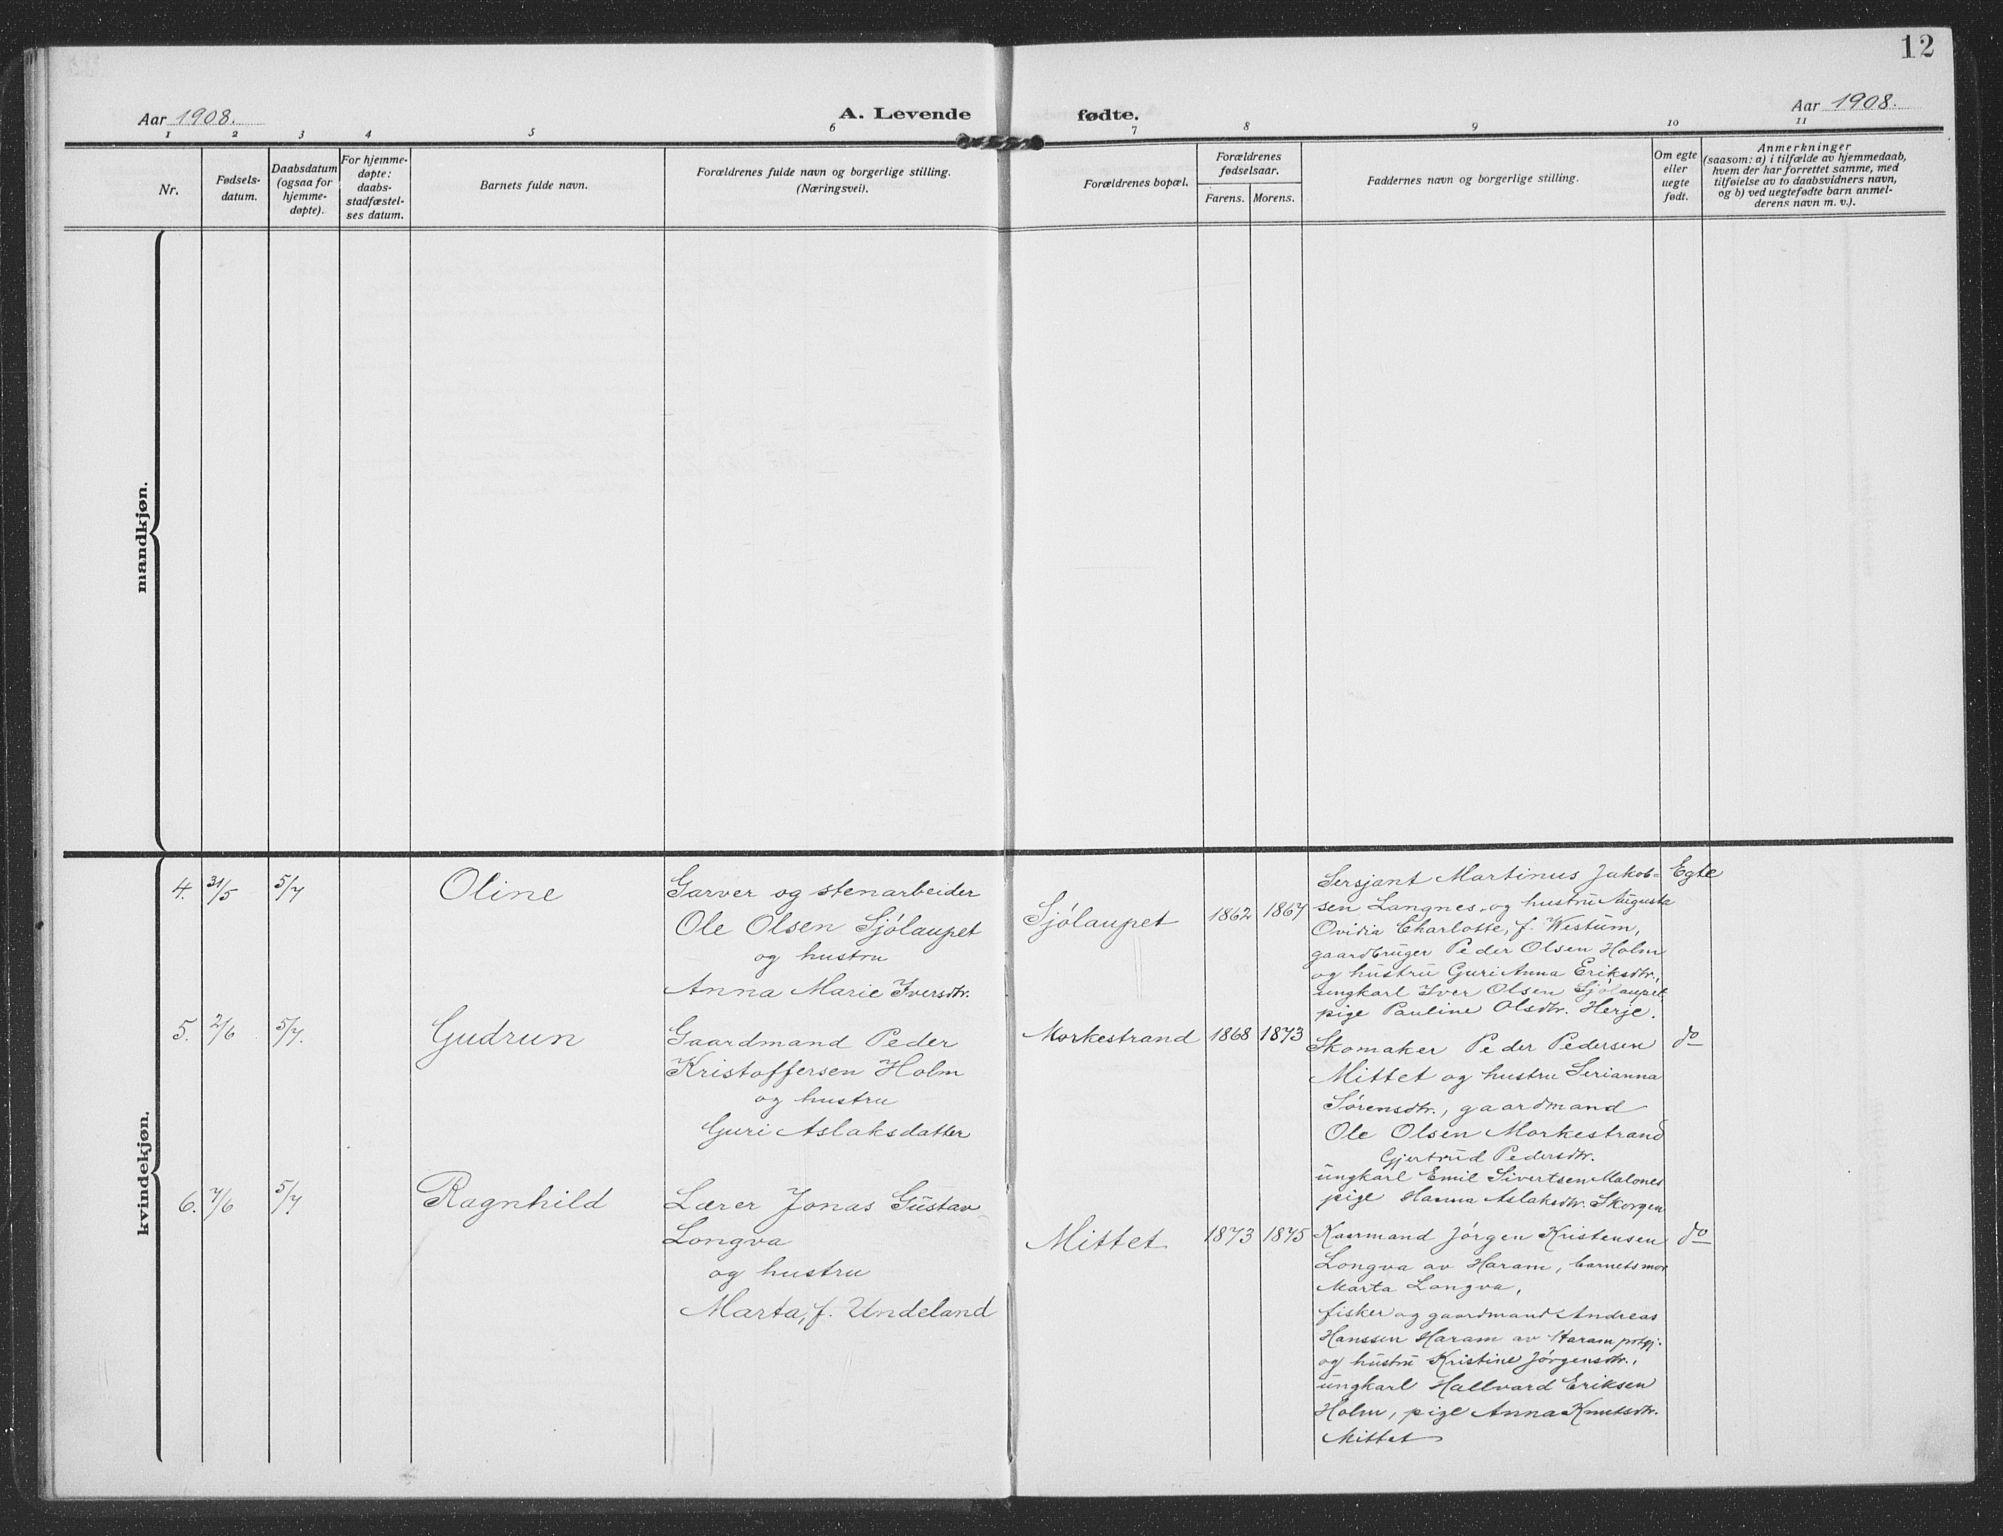 12
Aar 1908.
A. Levende fødte.
Aar 1908.
1 2 3 4 5 6 7 8 9 10 11
Nr.
Fødsels-
datum.
Daabsdatum
(ogsaa for
hjemme-
døpte).
For hjemme-
døpte:
daabs-
stadfæstel-
ses datum.
Barnets fulde navn.
Forældrenes fulde navn og borgerlige stilling.
(Næringsvei).
Forældrenes bopæl.
Forældrenes
fødselsaar.
Farens. Morens.
Faddernes navn og borgerlige stilling.
Om egte
eller
uegte
født.
Anmerkninger
(saasom: a) i tilfælde av hjemmedaab,
hvem der har forrettet samme, med
tilføielse av to daabsvidners navn,
og b) ved uegtefødte barn anmel-
derens navn m. v.).
mandkjøn.
kvindekjøn.
4. 31/5 5/7 Oline
Garver og stenarbeider
Ole Olsen Sjölaupet
og hustru
Anna Marie Iversdtr.
Sjölaupet 1862 1867
Sersjant Martinus Jakob-
sen Langnes og hustru Augusta
Ovidia Charlotte, f. Westum,
gaardbruger Peder Olsen Holm
og hustru Guri Anna Eriksdtr.,
ungkarl Iver Olsen Sjölaupet
pige Pauline Olsdtr. Herje.
Egte
5. 2/6 5/7. Gudrun
Gaardmand Peder
Kristoffersen Holm
og hustru
Guri Aslaksdatter
Morkestrand 1868 1873
Skomaker Peder Pedersen
Mittet og hustru Serianna
Sørensdtr., gaardmand
Ole Olsen Morkestrand
Gjertrud Pedersdtr.
ungkarl Emil Sivertsen Malones
pige Hanna Aslaksdtr. Skorgen
do
6. 7/6 5/7. Ragnhild
Lærer Jonas Gustav
Longva
og hustru
Marta, f. Undeland
Mittet 1873 1875
Kaarmand Jørgen Kristensen
Longva av Haram, barnets mor
Marta Longva,
fisker og gaardmand Andreas
Hanssen Haram av Haram prstgj.
og hustru Kristine Jørgensdtr.,
ungkarl Hallvard Eriksen
Holm, pige Anna Knutsdtr.
Mittet
do